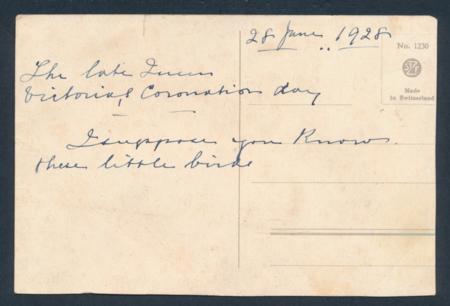 28 June .. 1928
No. 1230
Made
in Switzerland
The late Queen
Victoria's Coronation day
I suppose you know
these little birds